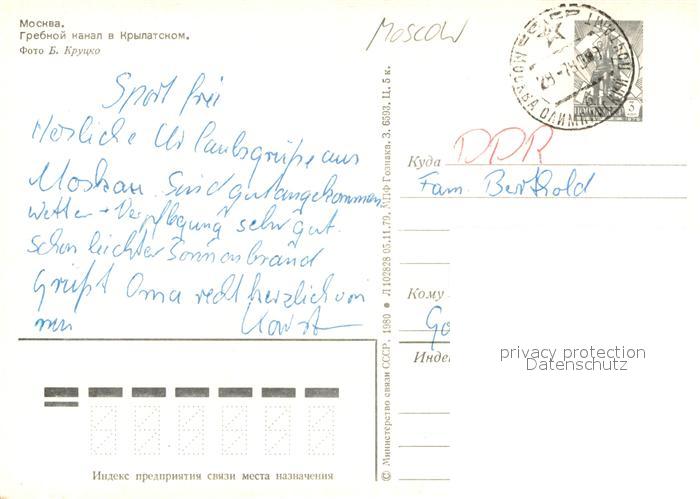 Москва.
Гребной канал в Крылатском.
Фото Б. Круцко
Moscow
Sport frei
Herzliche Urlaubsgrüße aus
Moskau. Sind gut angekommen
Wetter + Verpflegung sehr gut.
Schon leichter Sonnenbrand
Grüßt Oma recht herzlich von
Horst
Куда DDR
Fam. Berthold
Кому
Go
Инде
privacy protection
Datenschutz
Индекс предприятия связи места назначения
© Министерство связи СССР, 1980 ● Л 102828 05.11.79. МПФ Гознака, З. 6593. Ц. 5 к.